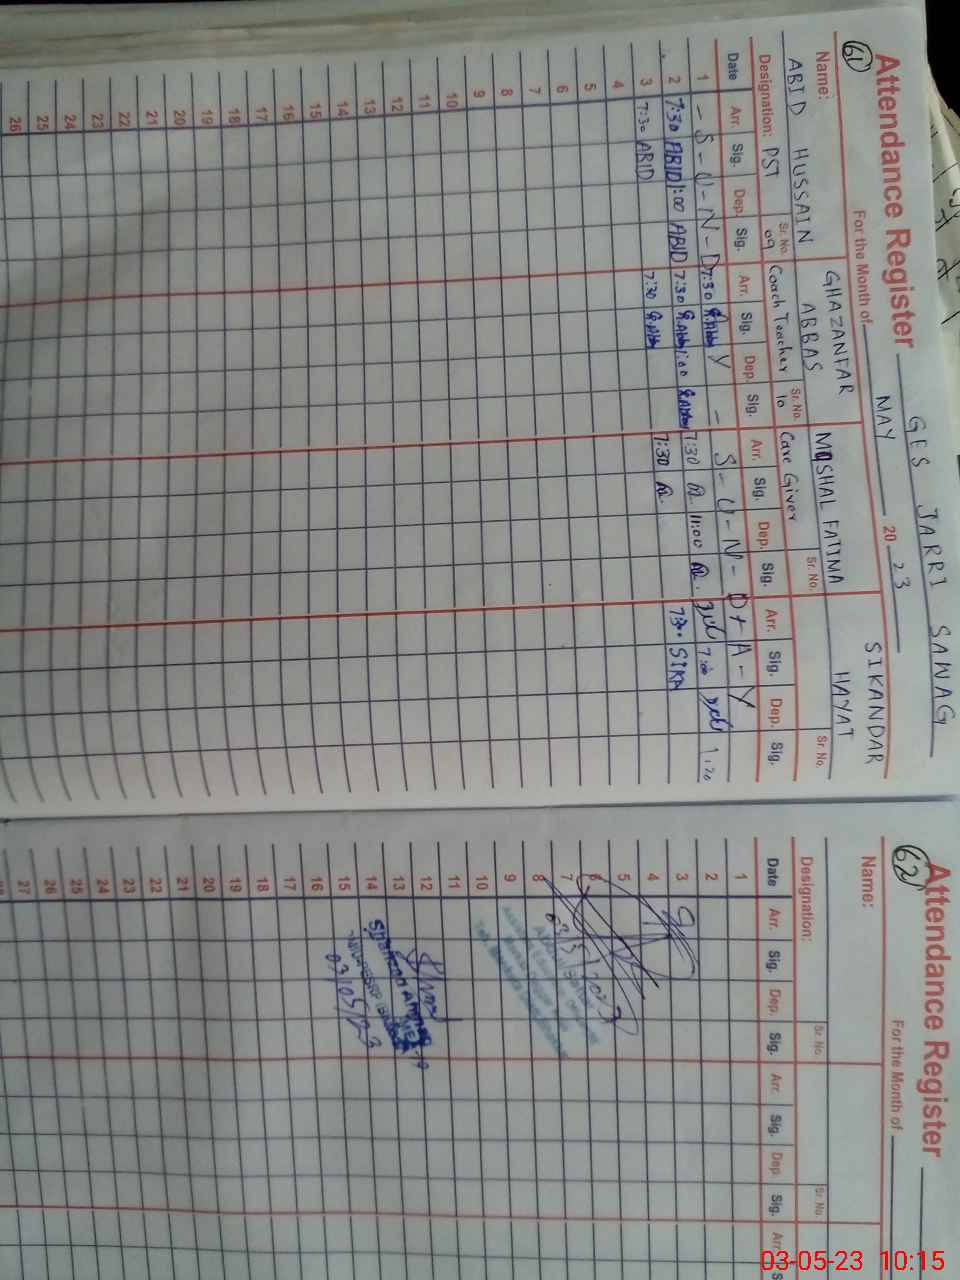 Attendance Register GES JARRI SAWAG
61 For the Month of MAY 2023
Name: ABID HUSSAIN GHAZANFAR ABBAS MOSHAL FATIMA SIKANDAR HAYAT
Sr. No. 09 Sr. No. 10 Sr. No. Sr. No.
Designation: PST Coach Teacher Care Giver
Date Arr. Sig. Dep. Sig. Arr. Sig. Dep. Sig. Arr. Sig. Dep. Sig. Arr. Sig. Dep. Sig.
1 - S - U - N - D 7:30 Y - S - U - N - D + A - Y
2 7:30 ABID 1:00 ABID 7:30 1:00 7:30 11:00 7:00 1:20
3 7:30 ABID 7:30 7:30 7300 SIKA
4
5
6
7
8
9
10
11
12
13
14
15
16
17
18
19
20
21
22
23
24
25
26
Attendance Register
62 For the Month of
Name:
Sr. No. Sr. No.
Designation:
Date Arr. Sig. Dep. Sig. Arr. Sig. Dep. Sig. Arr.
1
2
3
4
5
6
7 03/5/2023
8
9
10
11
12
13
14
15 03/05/23
16
17
18
19
20
21
22
23
24
25
26
27
03-05-23 10:15